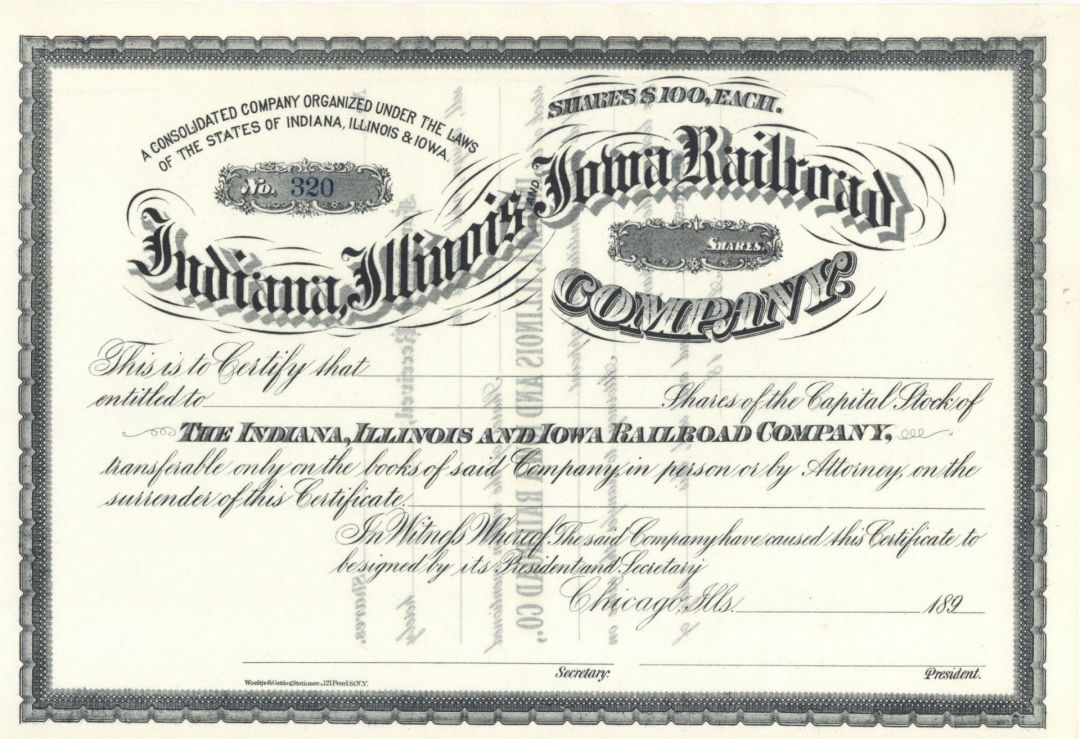 A CONSOLIDATED COMPANY ORGANIZED UNDER THE LAWS
OF THE STATES OF INDIANA, ILLINOIS & IOWA.
No. 320
SHARES $100, EACH.
Indiana, Illinois AND Iowa Railroad
SHARES.
COMPANY.
This is to Certify that
entitled to Shares of the Capital Stock of
THE INDIANA, ILLINOIS AND IOWA RAILROAD COMPANY,
transferable only on the books of said Company, in person or by Attorney, on the
surrender of this Certificate
In Witness Whereof, The said Company have caused this Certificate to
be signed by its President and Secretary
Chicago, Ills. 189
Secretary. President.